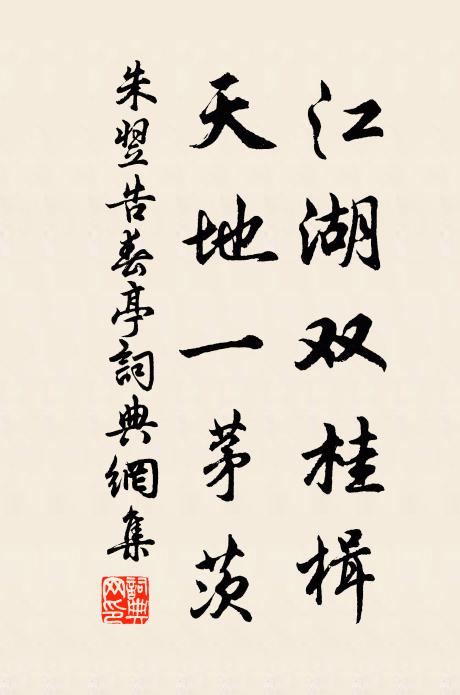 江湖双桂楫
天地一茅茨
朱翌告春亭詞典網集
詞典网印